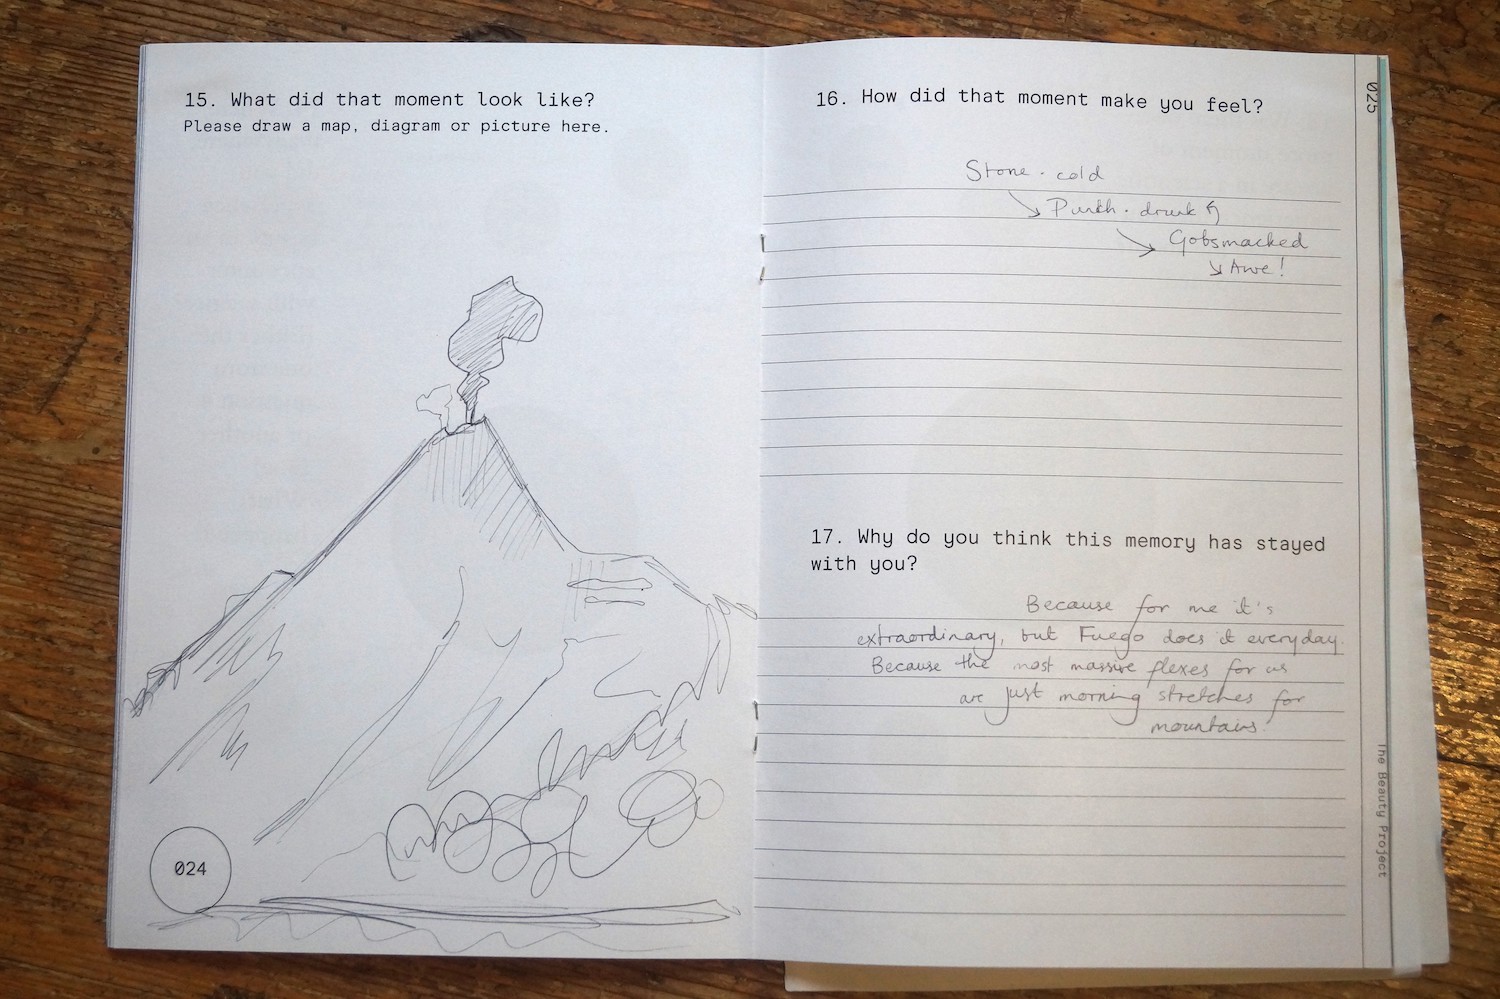 15. What did that moment look like?
Please draw a map, diagram or picture here.
024
16. How did that moment make you feel?
Stone-cold
Punch-drunk
Gobsmacked
Awe!
17. Why do you think this memory has stayed
with you?
Because for me it's
extraordinary, but Fuego does it everyday.
Because the most massive flexes for us
are just morning stretches for
mountains.
025
The Beauty Project